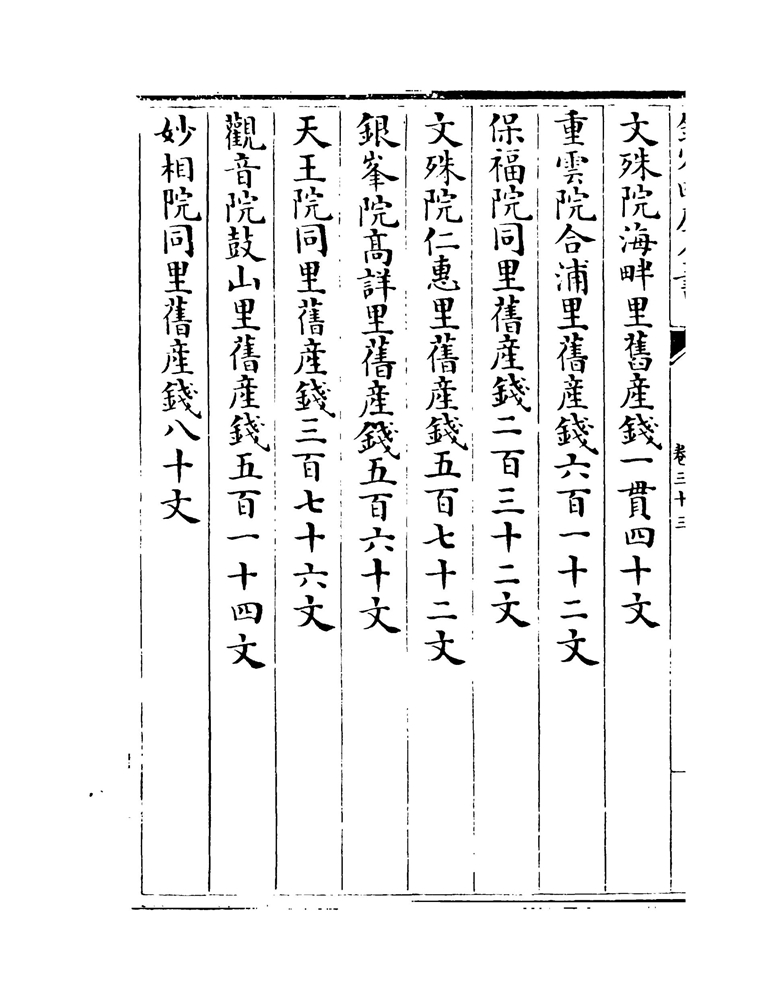 文殊院海畔里舊産錢一貫四十文
重雲院合浦里舊産錢六百一十二文
保福院同里舊産錢二百三十二文
文殊院仁惠里舊産錢五百七十二文
銀峯院髙詳里舊産錢五百六十文
天王院同里舊産錢三百七十六文
觀音院鼓山里舊産錢五百一十四文
妙相院同里舊産錢八十文
卷三十三